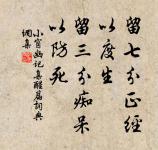 留七分正經
以度生
留三分痴呆
以防死
小窗幽記集醒篇詞典
網集